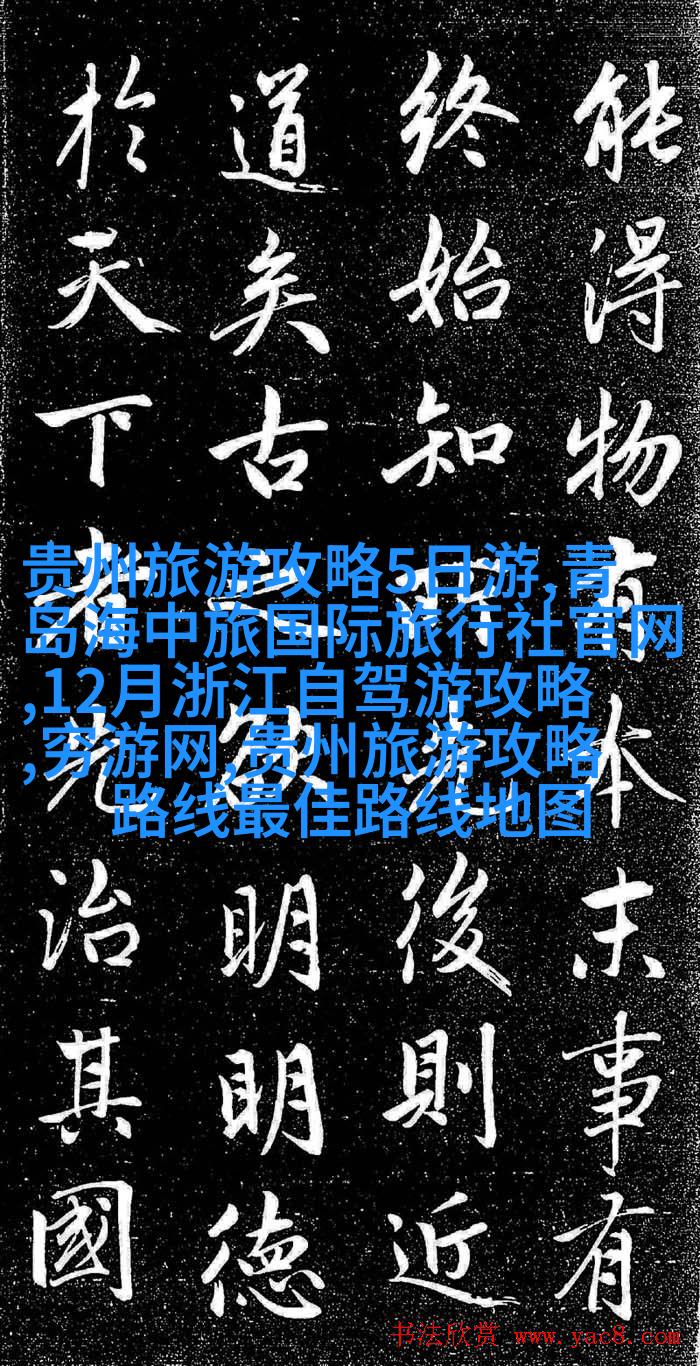 能得物有本末事有
終始知所先後則近
道矣古之欲明明德
於天下者先治其國
贵州旅游攻略5日游,青
岛海中旅国际旅行社官网
,12月浙江自驾游攻略
,穷游网,贵州旅游攻略
路线最佳路线地图
书法欣赏 www.yac8.com